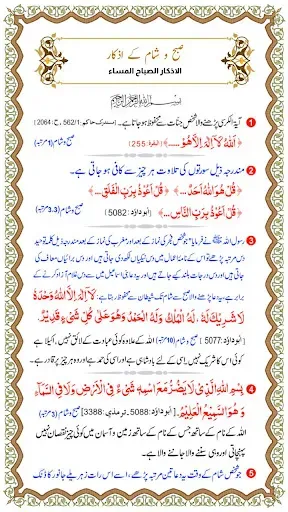 صبح و شام کے اذکار
الاذكار الصباح المساء
بسم اللہ الرحمن الرحیم
1 آیۃ الکرسی پڑھنے والا شخص جنات سے محفوظ ہو جاتا ہے۔ (مستدرک حاکم: 562/1، ح: 2064)
﴿اَللّٰهُ لَآ اِلٰهَ اِلَّا هُوَ .....﴾ (البقرۃ: 255) صبح و شام (1 مرتبہ)
2 مندرجہ ذیل سورتوں کی تلاوت ہر چیز سے کافی ہو جاتی ہے۔
﴿قُلْ هُوَ اللّٰهُ اَحَدٌ...﴾ ﴿قُلْ اَعُوْذُ بِرَبِّ الْفَلَقِ...﴾
﴿قُلْ اَعُوْذُ بِرَبِّ النَّاسِ...﴾ (ابوداؤد: 5082) صبح و شام (3،3 مرتبہ)
3 رسول اللہ ﷺ نے فرمایا: جو شخص فجر کی نماز کے بعد اور مغرب کی نماز کے بعد درج ذیل کلمہ توحید
دس مرتبہ پڑھے تو اس کے نامۂ اعمال میں دس نیکیاں لکھ دی جاتی ہیں اور دس برائیاں معاف کی
جاتی ہیں اور دس درجات بلند کیے جاتے ہیں اور یہ دعا بنی اسماعیل میں سے دس غلام آزاد کرنے کے
برابر ہے، یہ دعا پڑھنے والا صبح سے شام تک شیطان سے محفوظ رہتا ہے: لَآ اِلٰهَ اِلَّا اللّٰهُ وَحْدَهٗ
لَا شَرِيْكَ لَهٗ، لَهُ الْمُلْكُ وَلَهُ الْحَمْدُ وَهُوَ عَلٰى كُلِّ شَىْءٍ قَدِيْرٌ.
(ابوداؤد: 5077) صبح و شام (10 مرتبہ) اللہ کے علاوہ کوئی عبادت کے لائق نہیں، اکیلا ہے
کوئی اس کا شریک نہیں، اسی کے لیے بادشاہی ہے اور اسی کی حمد ہے اور وہ ہر چیز پر قادر ہے۔
4 بِسْمِ اللّٰهِ الَّذِىْ لَا يَضُرُّ مَعَ اسْمِهٖ شَىْءٌ فِى الْاَرْضِ وَلَا فِى السَّمَآءِ
وَهُوَ السَّمِيْعُ الْعَلِيْمُ. [ابوداؤد: 5088، ترمذی: 3388] صبح و شام (3 مرتبہ)
اللہ کے نام کے ساتھ جس کے نام کے ساتھ زمین و آسمان میں کوئی چیز نقصان نہیں
پہنچاتی اور وہی سننے والا جاننے والا ہے۔
5 جو شخص شام کے وقت یہ دعا تین مرتبہ پڑھے، اسے اس رات زہریلے جانور کا ڈنک